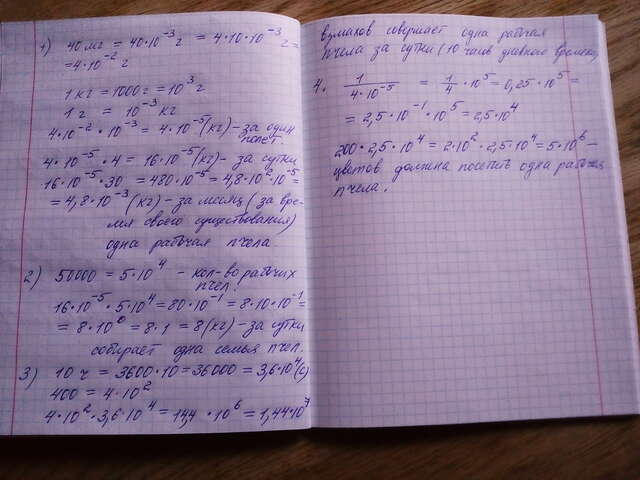 1) 40 мг = 40·10⁻³ г = 4·10·10⁻³ г =
= 4·10⁻² г
1 кг = 1000 г = 10³ г
1 г = 10⁻³ кг
4·10⁻² · 10⁻³ = 4·10⁻⁵ (кг) – за один
полет.
4·10⁻⁵ · 4 = 16·10⁻⁵ (кг) – за сутки
16·10⁻⁵ · 30 = 480·10⁻⁵ = 4,8·10²·10⁻⁵ =
= 4,8·10⁻³ (кг) – за месяц (за вре-
мя своего существования)
одна рабочая пчела
2) 50000 = 5·10⁴ – кол-во рабочих
пчел.
16·10⁻⁵ · 5·10⁴ = 80·10⁻¹ = 8·10·10⁻¹ =
= 8·10⁰ = 8·1 = 8 (кг) – за сутки
собирает одна семья пчел.
3) 10 ч = 3600·10 = 36000 = 3,6·10⁴ (с)
400 = 4·10²
4·10² · 3,6·10⁴ = 14,4 · 10⁶ = 1,44·10⁷
взмахов совершает одна рабочая
пчела за сутки (10 часов дневного времени)
4. 1/4·10⁻⁵ = 1/4 · 10⁵ = 0,25·10⁵ =
= 2,5·10⁻¹ · 10⁵ = 2,5·10⁴
200 · 2,5·10⁴ = 2·10² · 2,5·10⁴ = 5·10⁶ –
цветов должна посетить одна рабочая
пчела.